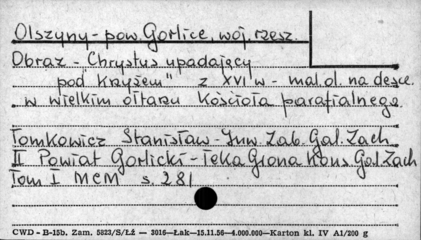 Olszyny - pow. Gorlice, woj. rzesz.
Obraz - Chrystus upadający
pod krzyżem" z XVI w - mal. ol. na desce
w wielkim ołtarzu Kościoła parafialnego.
Tomkowicz Stanisław - Inw. Zab. Gal. Zach
II Powiat Gorlicki - Teka Grona Kons Gal Zach
Tom I MCM s. 281
CWD - B-15b. Zam. 5823/S/ŁŻ — 3016—Łak—15.11.56—4.000.000—Karton kl. IV A1/200 g